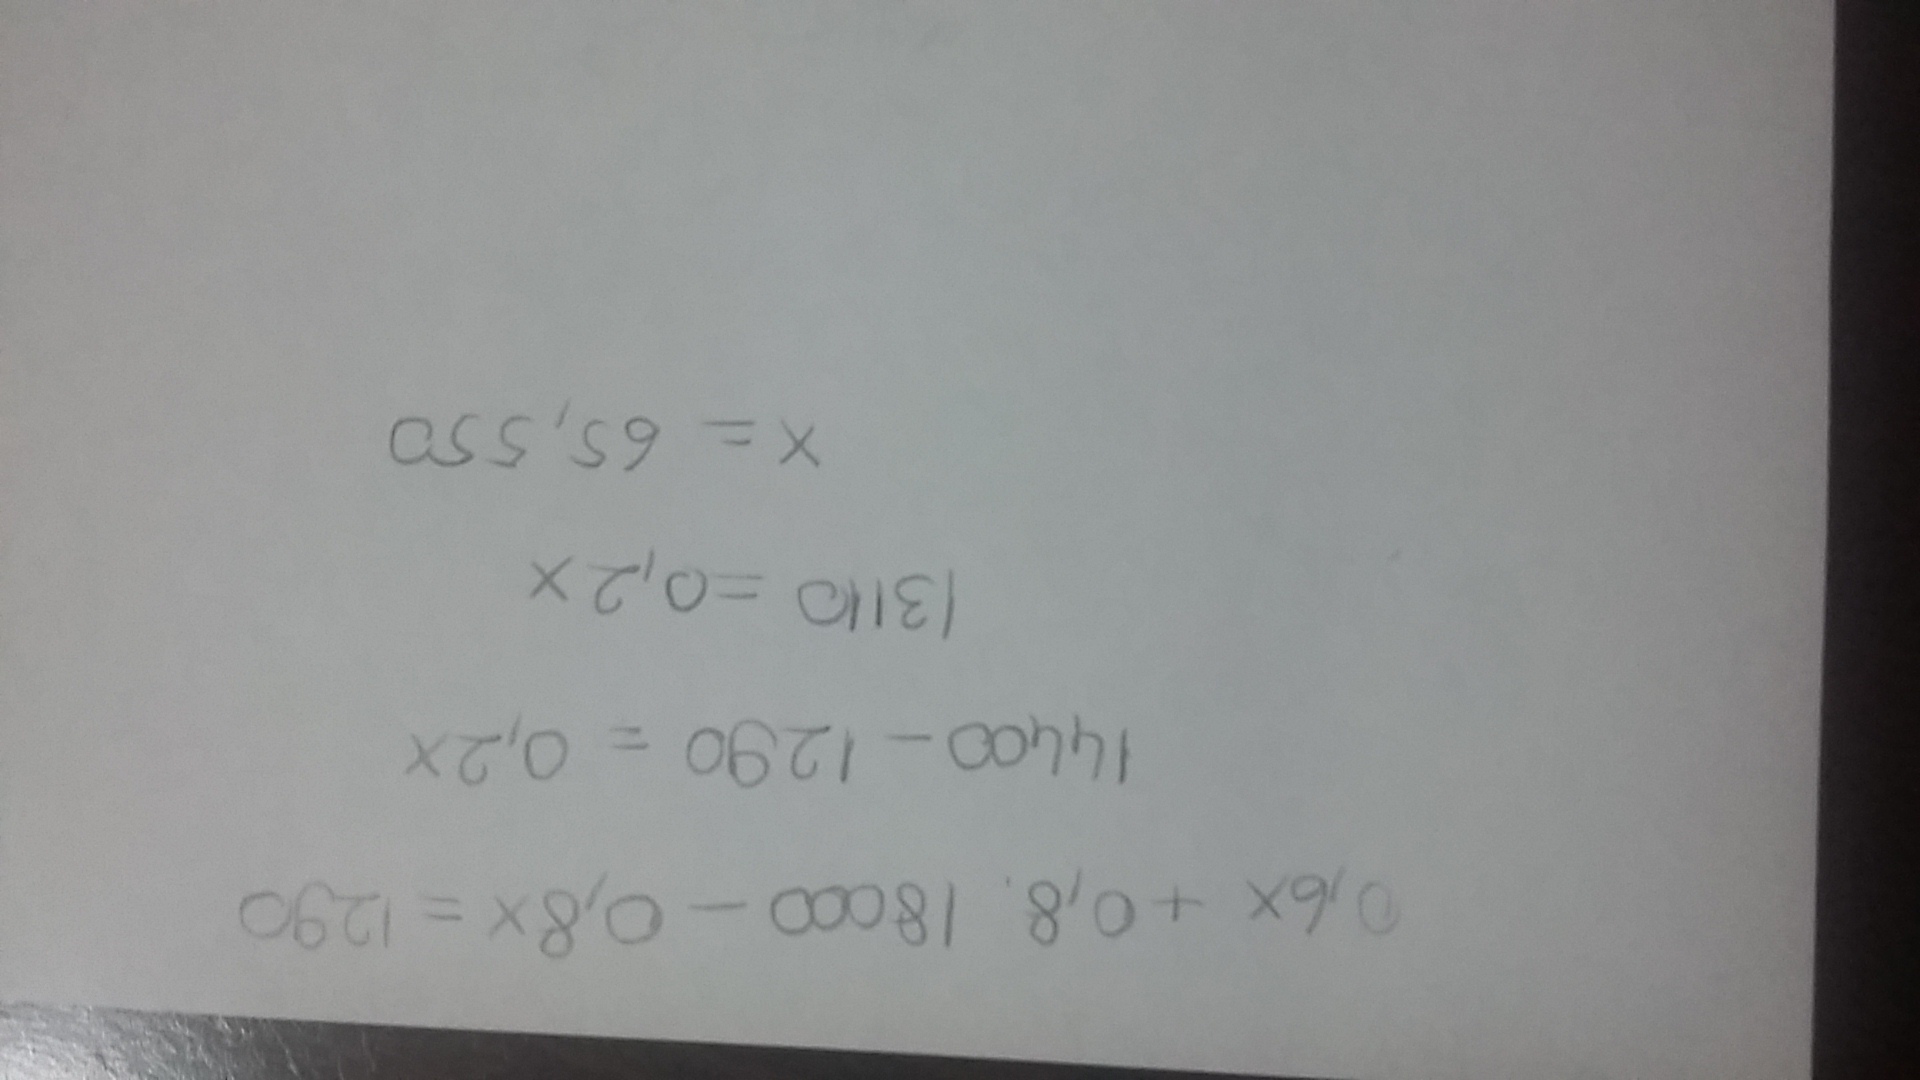 0,6x + 0,8. 18000 - 0,8x = 1290
14400 - 1290 = 0,2x
13110 = 0,2x
x = 65,550